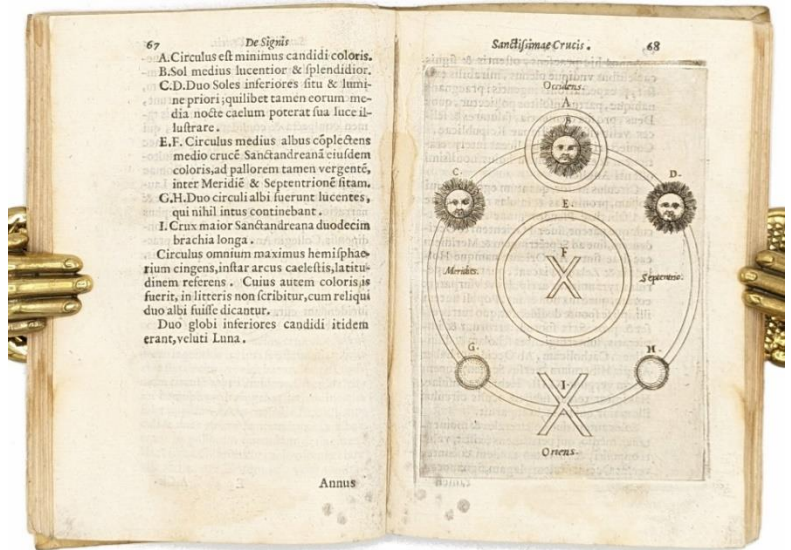 67 De Signis
A.Circulus est minimus candidi coloris.
B.Sol medius lucentior & splendidior.
C.D.Duo Soles inferiores situ & lumi-
ne priori; quilibet tamen eorum me-
dia nocte caelum poterat sua luce il-
lustrare.
E.F. Circulus medius albus cõplectens
medio crucẽ Sanctandreanã eiusdem
coloris,ad pallorem tamen vergentẽ,
inter Meridiẽ & Septentrionẽ sitam.
G.H.Duo circuli albi fuerunt lucentes,
qui nihil intus continebant.
I.Crux maior Sanctandreana duodecim
brachia longa.
Circulus omnium maximus hemisphae
rium cingens,instar arcus caelestis,latitu-
dinem referens. Cuius autem coloris is
fuerit, in litteris non scribitur,cum reliqui
duo albi fuisse dicantur.
Duo globi inferiores candidi itidem
erant,veluti Luna.
Annus
Sanctissimae Crucis. 68
Occidens.
A
B
C.
D.
E.
F
Meridies.
Septentrio.
G.
H.
I.
Oriens.